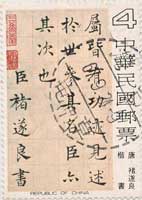 4
中華民國郵票
唐 褚遂良
楷書
屬皆有功迹見述
於世者其名臣六
其次也
臣褚遂良書
REPUBLIC OF CHINA